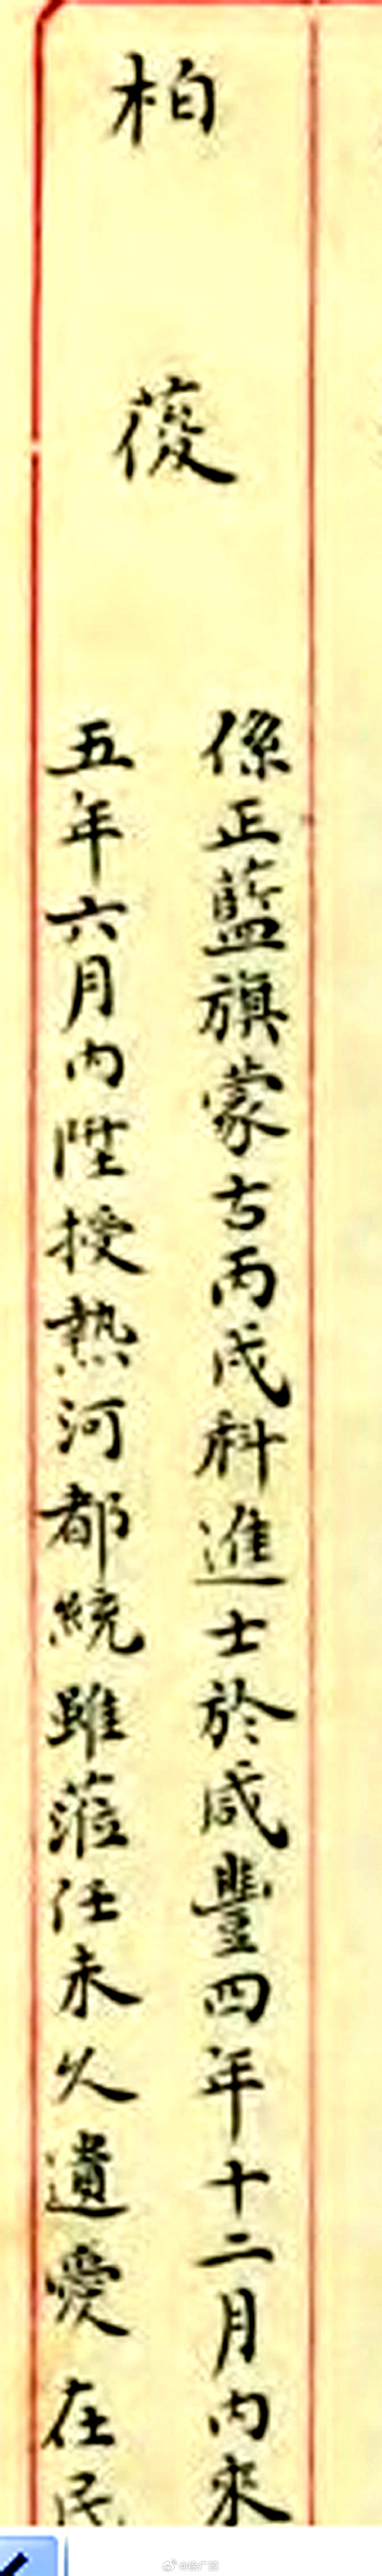 柏葰
係正藍旗蒙古丙戌科進士於咸豐四年十二月内來
五年六月内陞授热河都統雖蒞任未久遺愛在民